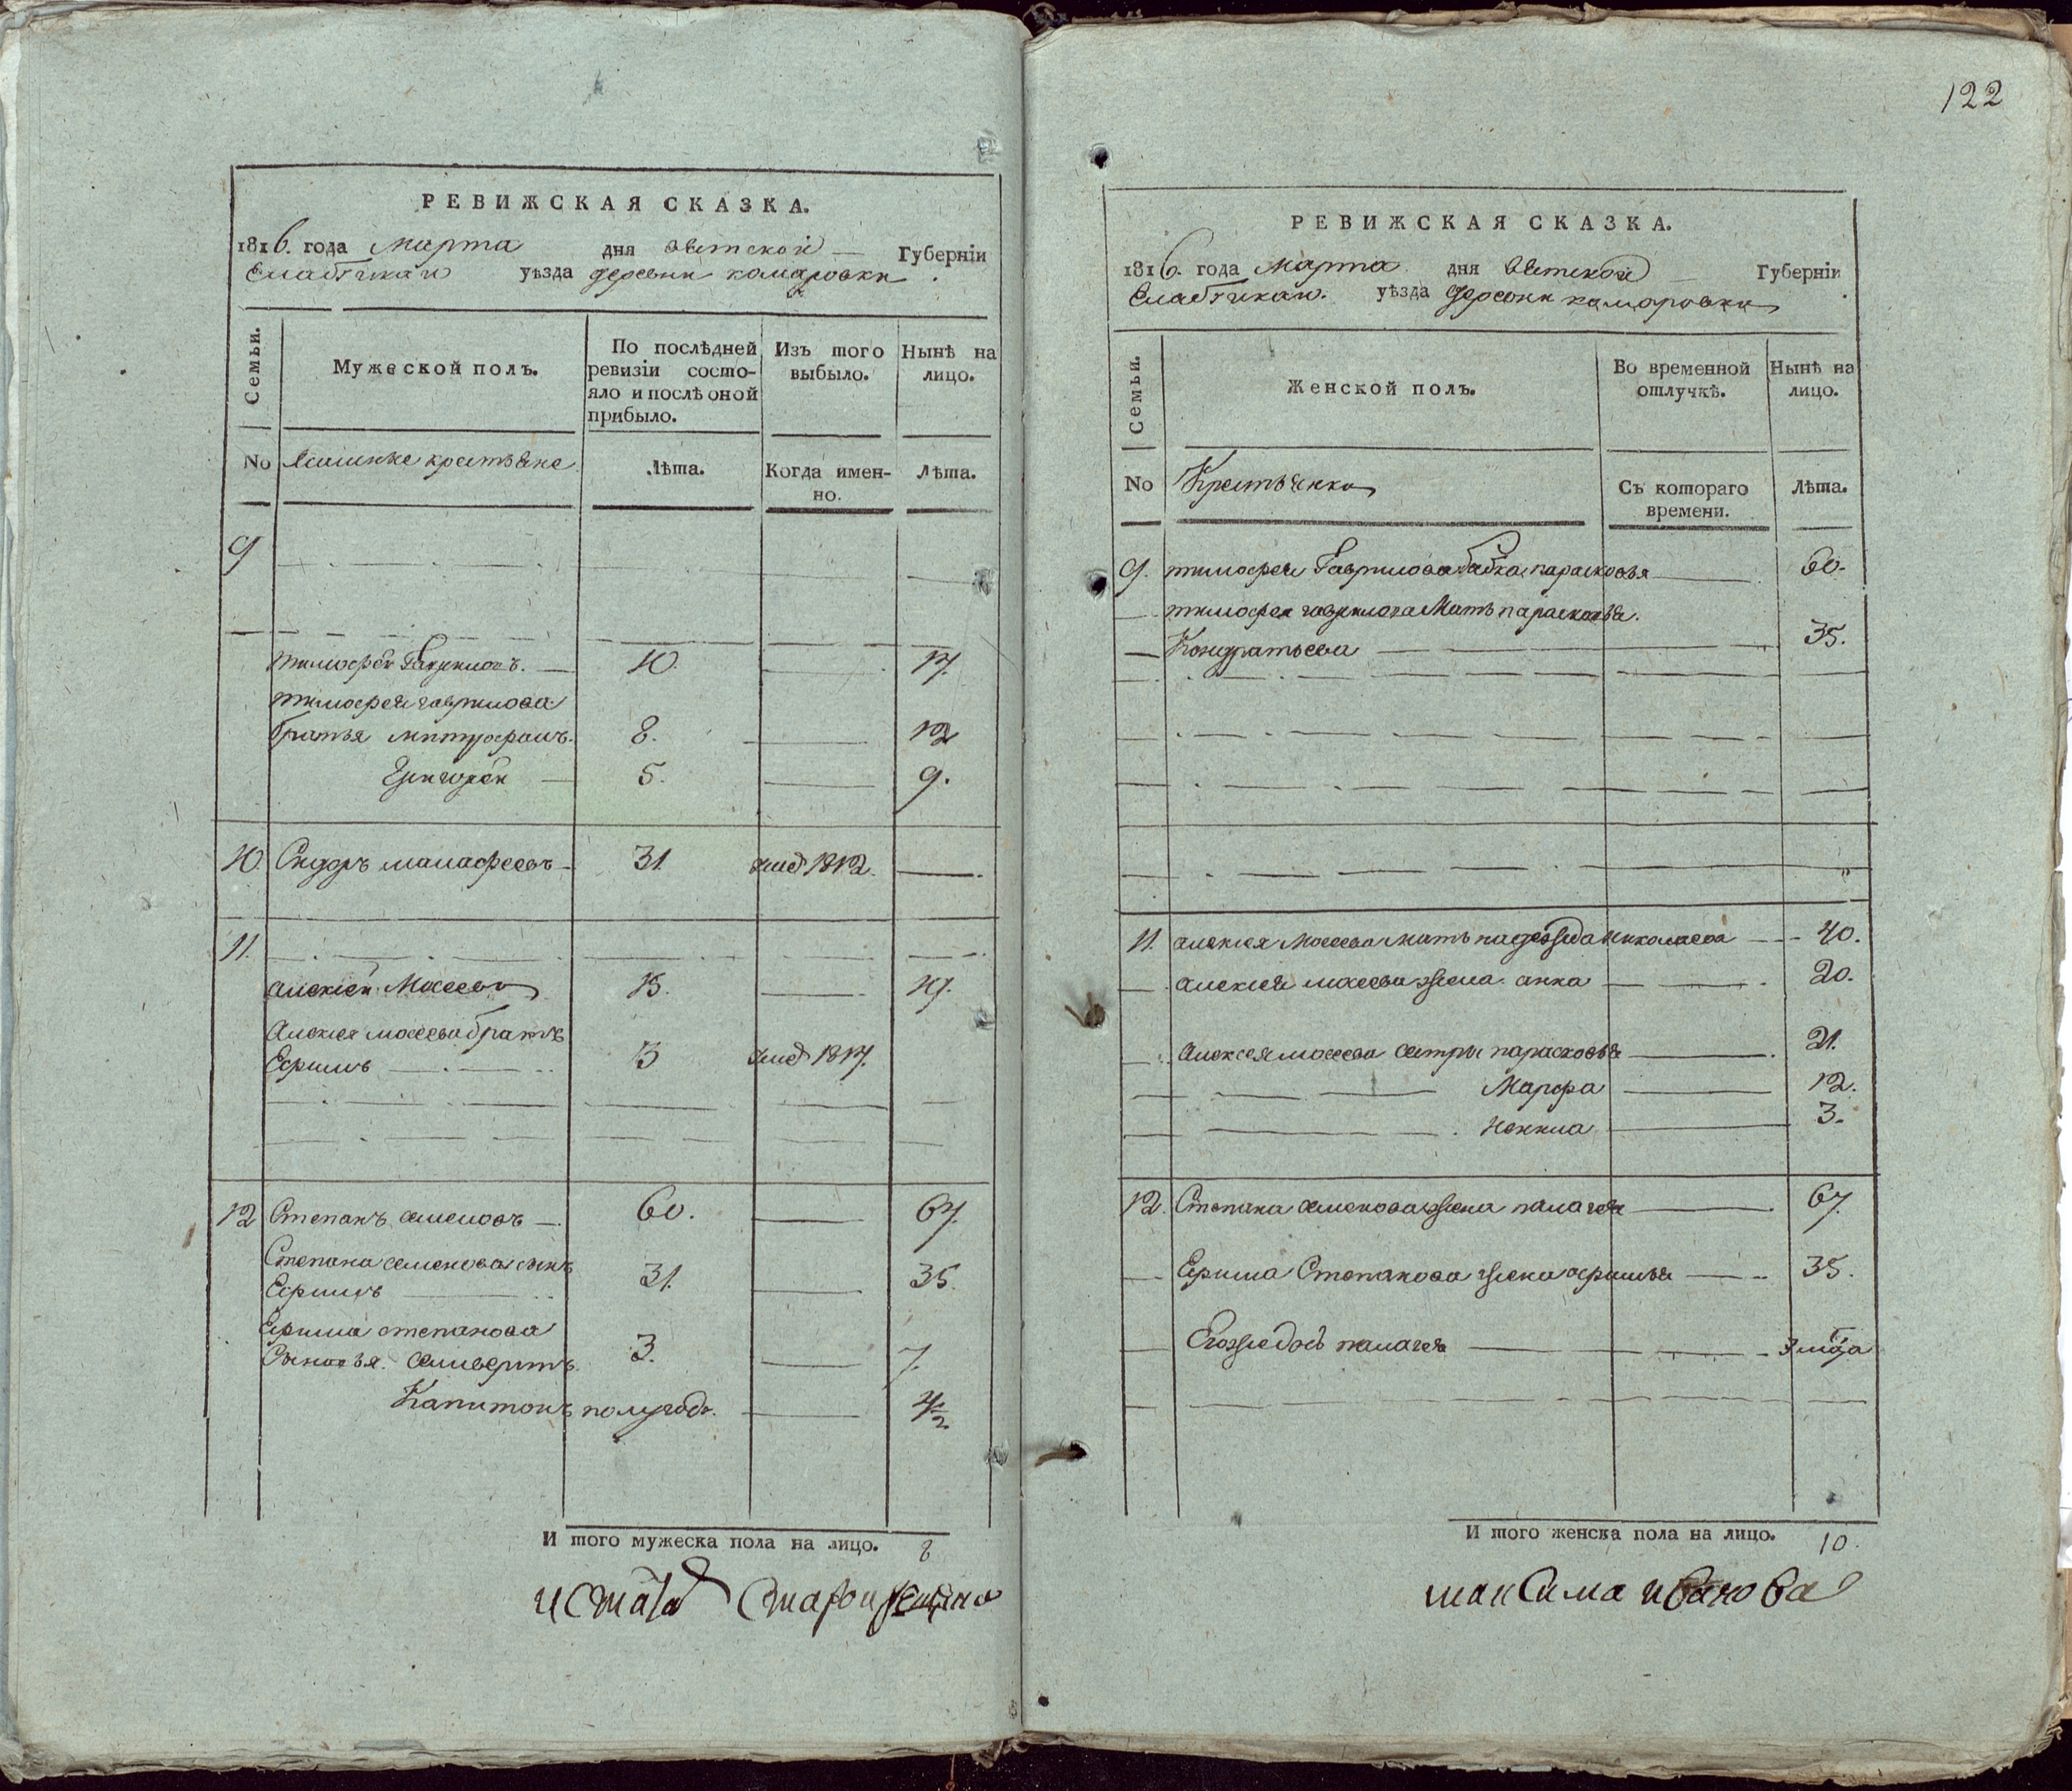 122
РЕВИЖСКАЯ СКАЗКА.
1816. года марта дня вятской Губернїи
Елабускаи уѣзда деревни комаровки
Семьи. Мужеской полъ. По послѣдней ревизїи состояло и послѣ оной прибыло. Изъ того выбыло. Нынѣ на лицо.
No крестьяне Лѣта. Когда именно. Лѣта.
9
тимофей Гавриловъ. 10. 14.
тимофея гаврилова
братья митрофанъ. 8. 12
Григорей 5. 9.
10. Сидоръ малафеевъ 31. умеръ 1812.
11.
алексей Мосеевъ 15. 19.
Алексея мосеева братъ
Ефимъ 13 умеръ 1814.
12 Степанъ семеновъ 60. 64.
Степана семенова сынъ
Ефимъ 31. 35.
Ефима степанова
Сыновья. селиверстъ. 3. 7.
Капитонъ полугоду. 4½
И того мужеска пола на лицо. 8
РЕВИЖСКАЯ СКАЗКА.
1816. года марта дня Вятской Губернїи
Елабускаи. уѣзда деревни комаровки
Семьи. Женской полъ. Во временной отлучкѣ. Нынѣ на лицо.
No Крестьянки Съ котораго времени. Лѣта.
9. тимофея Гаврилова бабка парасковья 60.
тимофея гаврилова Мать парасковья.
Кондратьева 35.
11. алексея Мосеева мать надежда николаева 40.
алексея мосеева жена анна 20.
алексея мосеева сестры парасковья 21.
Марфа 12.
Ненила 3.
12. Степана семенова жена палагея 64.
Ефима Степанова жена афимья 35.
Егожедочь палагея 3 мца
И того женска пола на лицо. 10.
максима иванова